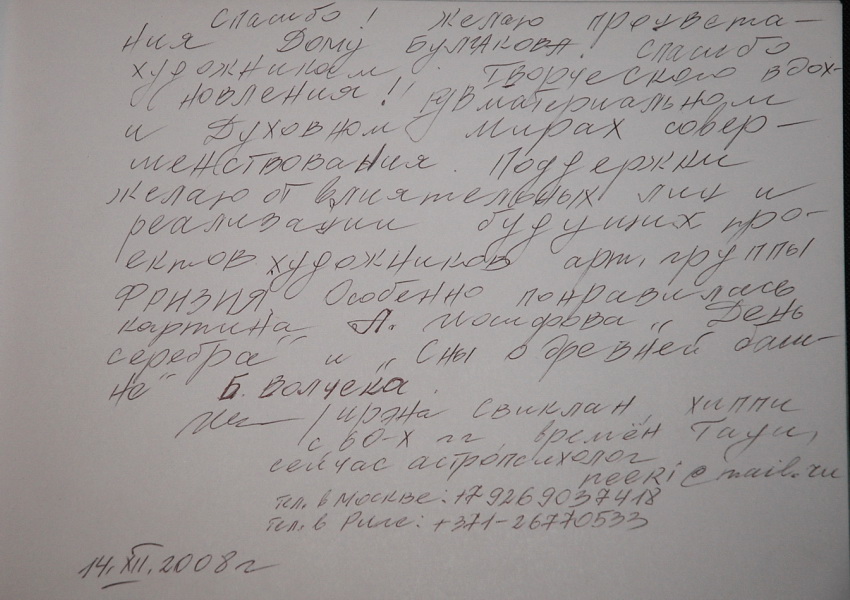 Спасибо! Желаю процвета-
ния Дому Булгакова! Спасибо
художникам. Творческого вдох-
новления!! в материальном
и Духовном мирах совер-
менствования. Поддержки
желаю от влиятельных лиц и
реализации будущих про-
ектов художников арт. группы
Фризия. Особенно понравилась
картина А. Иосифова „День
серебра" и „Сны о древней баш-
не" Б. Волчека.
/ Ирэна Свиклан, хиппи
с 60-х гг, времён
сейчас астропсихолог
neeri@mail.ru
тел. в Москве: +79269037418
тел. в Риге: +371-26770533
14.XII.2008г